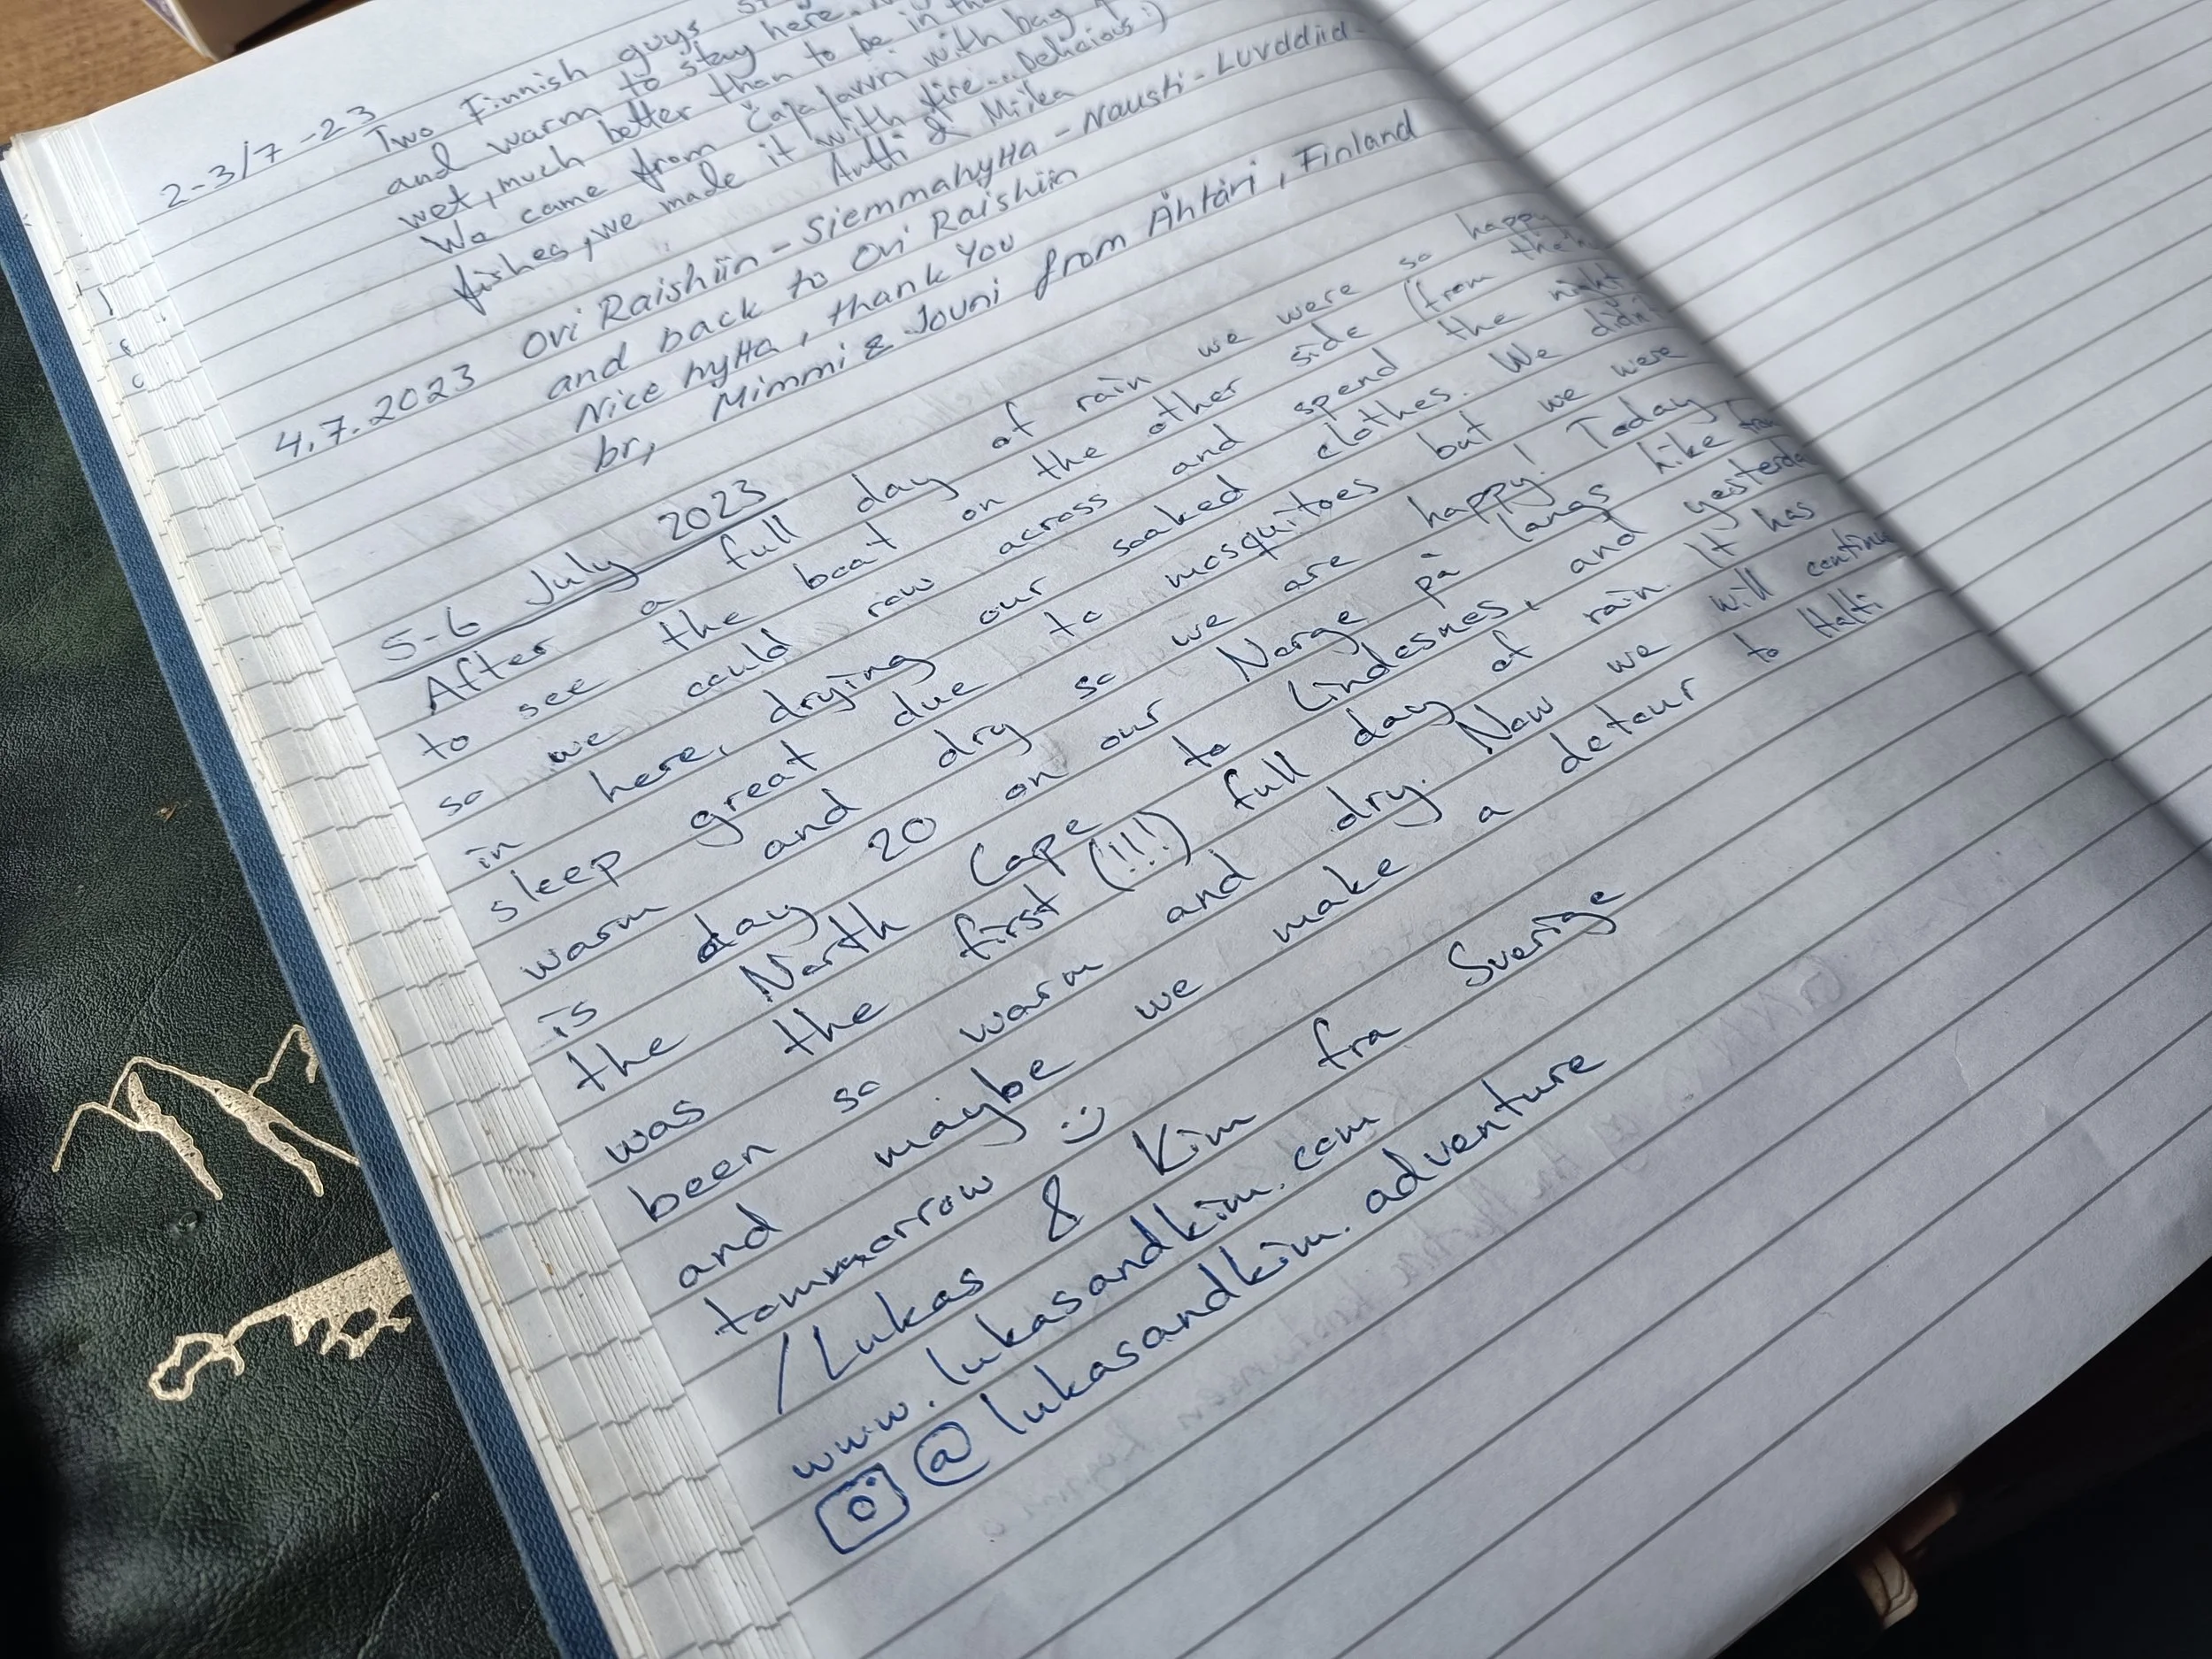 2-3/7-23 Two Finnish guys
and warm to stay here.
wet, much better than to be in the
We came from Čaja javri with bag
fishes, we made it with fire... Delicious :)
Antti & Miika
4.7.2023 Ovi Raishiin - Siemmahytta - Nausti - Luvddiid-
and back to Ovi Raishiin
Nice hytta, thank You
br, Mimmi & Jouni from Ähtäri, Finland
5-6 July 2023
After a full day of rain we were so happy
to see the boat on the other side (from the
so we could row across and spend the night
in here, drying our soaked clothes. We didn't
sleep great due to mosquitoes but we were
warm and dry so we are happy! Today
is day 20 on our Norge på langs hike from
the North Cape to Lindesnes, and yesterday
was the first (!!!) full day of rain. It has
been so warm and dry. Now we will continue
and maybe we make a detour to Halti
tommorrow :)
/Lukas & Kim fra Sverige
www.lukasandkim.com
@lukasandkim.adventure